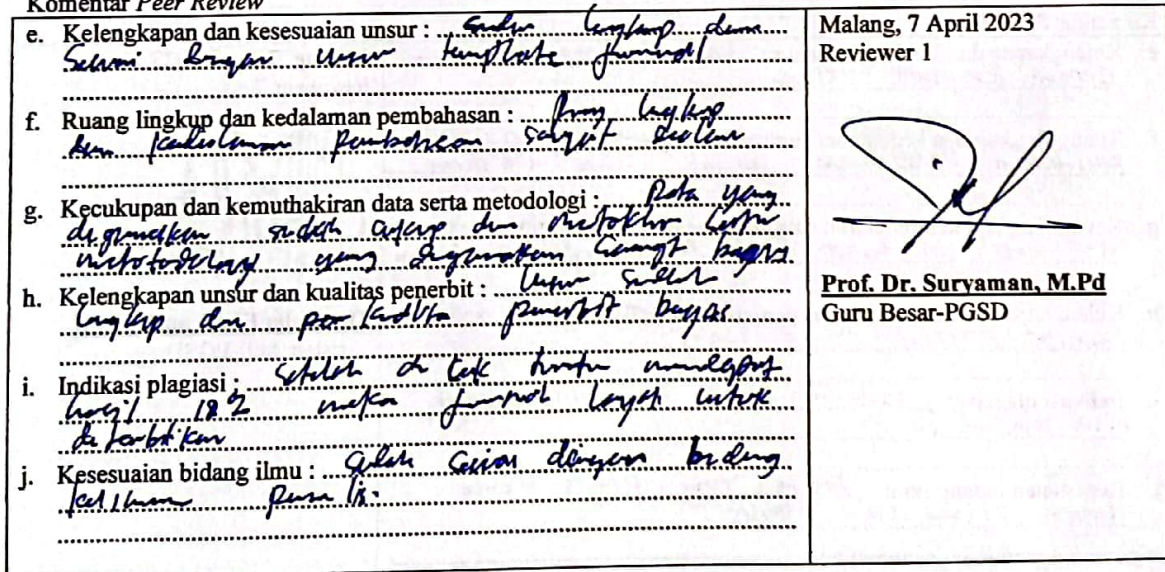 Komentar Peer Review
e. Kelengkapan dan kesesuaian unsur : sudah lengkap dan
Sesuai dengan Unsur template jurnal
f. Ruang lingkup dan kedalaman pembahasan : lingkup
dan kedalaman pembahasan sangat dalam
g. Kecukupan dan kemuthakiran data serta metodologi : Data yang
digunakan sudah cukup dan
metodologi yang digunakan sangat bagus
h. Kelengkapan unsur dan kualitas penerbit : Unsur sudah
lengkap dan penerbit bagus.
i. Indikasi plagiasi : setelah di cek
hasil 18% maka jurnal layak untuk
di terbitkan
j. Kesesuaian bidang ilmu : Sudah Sesuai dengan bidang
penulis.
Malang, 7 April 2023
Reviewer 1
Prof. Dr. Suryaman, M.Pd
Guru Besar-PGSD